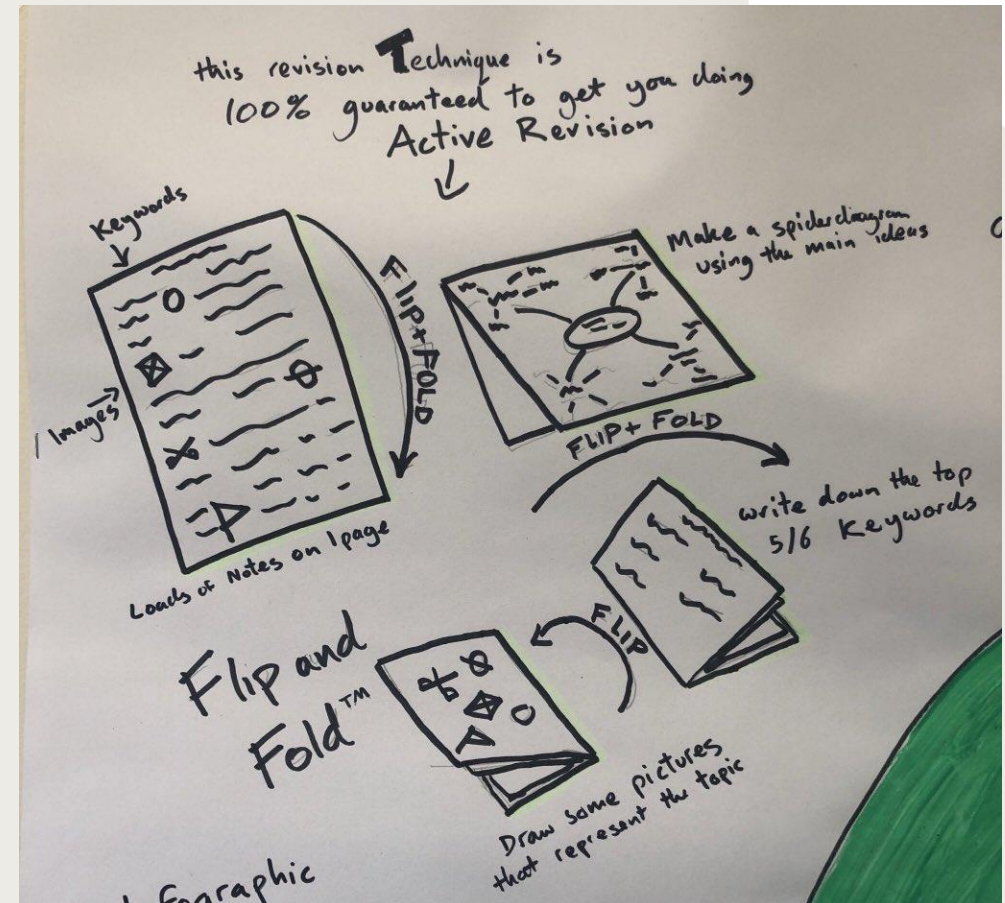 this revision Technique is
100% guaranteed to get you doing
Active Revision
Keywords
Images
Loads of Notes on 1 page
FLIP + FOLD
Make a spiderdiagram
using the main ideas
FLIP + FOLD
write down the top
5/6 Keywords
FLIP
Draw some pictures
that represent the topic
Flip and
Fold™